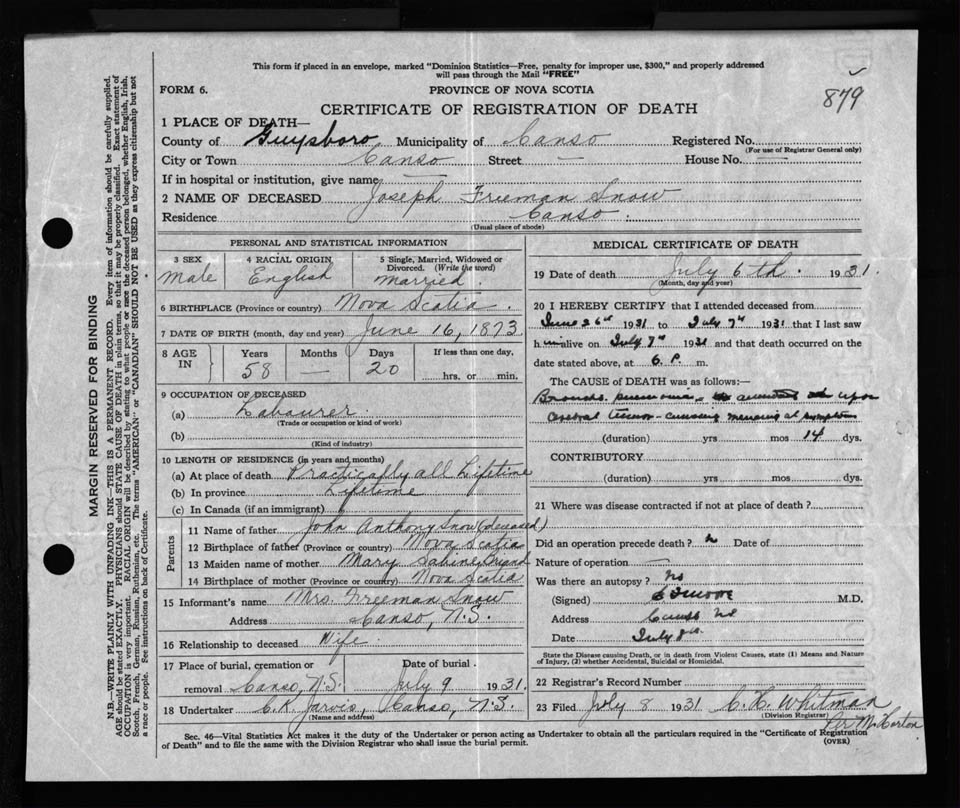 This form if placed in an envelope, marked "Dominion Statistics—Free, penalty for improper use, $300," and properly addressed
will pass through the Mail "FREE"
FORM 6.
PROVINCE OF NOVA SCOTIA
879
CERTIFICATE OF REGISTRATION OF DEATH
1 PLACE OF DEATH—
County of Guysboro Municipality of Canso Registered No.
(For use of Registrar General only)
City or Town Canso Street — House No. —
If in hospital or institution, give name —
2 NAME OF DECEASED Joseph Freeman Snow
Residence Canso.
(Usual place of abode)
PERSONAL AND STATISTICAL INFORMATION
3 SEX 4 RACIAL ORIGIN 5 Single, Married, Widowed or
Divorced. (Write the word)
Male English married.
6 BIRTHPLACE (Province or country) Nova Scotia.
7 DATE OF BIRTH (month, day and year) June 16, 1873
8 AGE IN Years Months Days If less than one day,
58 — 20 hrs. or min.
9 OCCUPATION OF DECEASED
(a) Labourer.
(Trade or occupation or kind of work)
(b)
(Kind of industry)
10 LENGTH OF RESIDENCE (in years and months)
(a) At place of death Practically all Lifetime
(b) In province Lifetime
(c) In Canada (if an immigrant)
Parents
11 Name of father John Anthony Snow (deceased)
12 Birthplace of father (Province or country) Nova Scotia
13 Maiden name of mother Mary Sabine
14 Birthplace of mother (Province or country) Nova Scotia
15 Informant's name Mrs. Freeman Snow
Address Canso, N.S.
16 Relationship to deceased Wife.
17 Place of burial, cremation or Date of burial
removal Canso, N.S. July 9 1931.
18 Undertaker C. K. Jarvis, Canso, N.S.
(Name and address)
MEDICAL CERTIFICATE OF DEATH
19 Date of death July 6th. 1931.
(Month, day and year)
20 I HEREBY CERTIFY that I attended deceased from
June 26th 1931 to July 7th 1931 that I last saw
him alive on July 7th 1931 and that death occurred on the
date stated above, at 6. P. m.
The CAUSE OF DEATH was as follows:—
Broncho. pneumonia upon
Cerebral Tumor - causing symptoms
(duration) yrs mos 14 dys.
CONTRIBUTORY
(duration) yrs mos dys.
21 Where was disease contracted if not at place of death?
Did an operation precede death? N Date of
Nature of operation —
Was there an autopsy? No
(Signed) M.D.
Address Canso NS
Date July 8th.
State the Disease causing Death, or in death from Violent Causes, state (1) Means and Nature
of Injury, (2) whether Accidental, Suicidal or Homicidal.
22 Registrar's Record Number
23 Filed July 8 1931 C. H. Whitman
(Division Registrar)
Per M. Horton
Sec. 46—Vital Statistics Act makes it the duty of the Undertaker or person acting as Undertaker to obtain all the particulars required in the "Certificate of Registration
of Death" and to file the same with the Division Registrar who shall issue the burial permit.
(OVER)
MARGIN RESERVED FOR BINDING
N.B.—WRITE PLAINLY WITH UNFADING INK—THIS IS A PERMANENT RECORD. Every item of information should be carefully supplied.
AGE should be stated EXACTLY. PHYSICIANS should STATE CAUSE OF DEATH in plain terms, so that it may be properly classified. Exact statement of
OCCUPATION is very important. RACIAL ORIGIN will be described by stating to what people or race the deceased person belonged, whether English, Irish,
Scotch, French, German, Russian, Ruthenian, etc. The terms "AMERICAN" or "CANADIAN" SHOULD NOT BE USED as they express citizenship but not
a race or people. See instructions on back of Certificate.